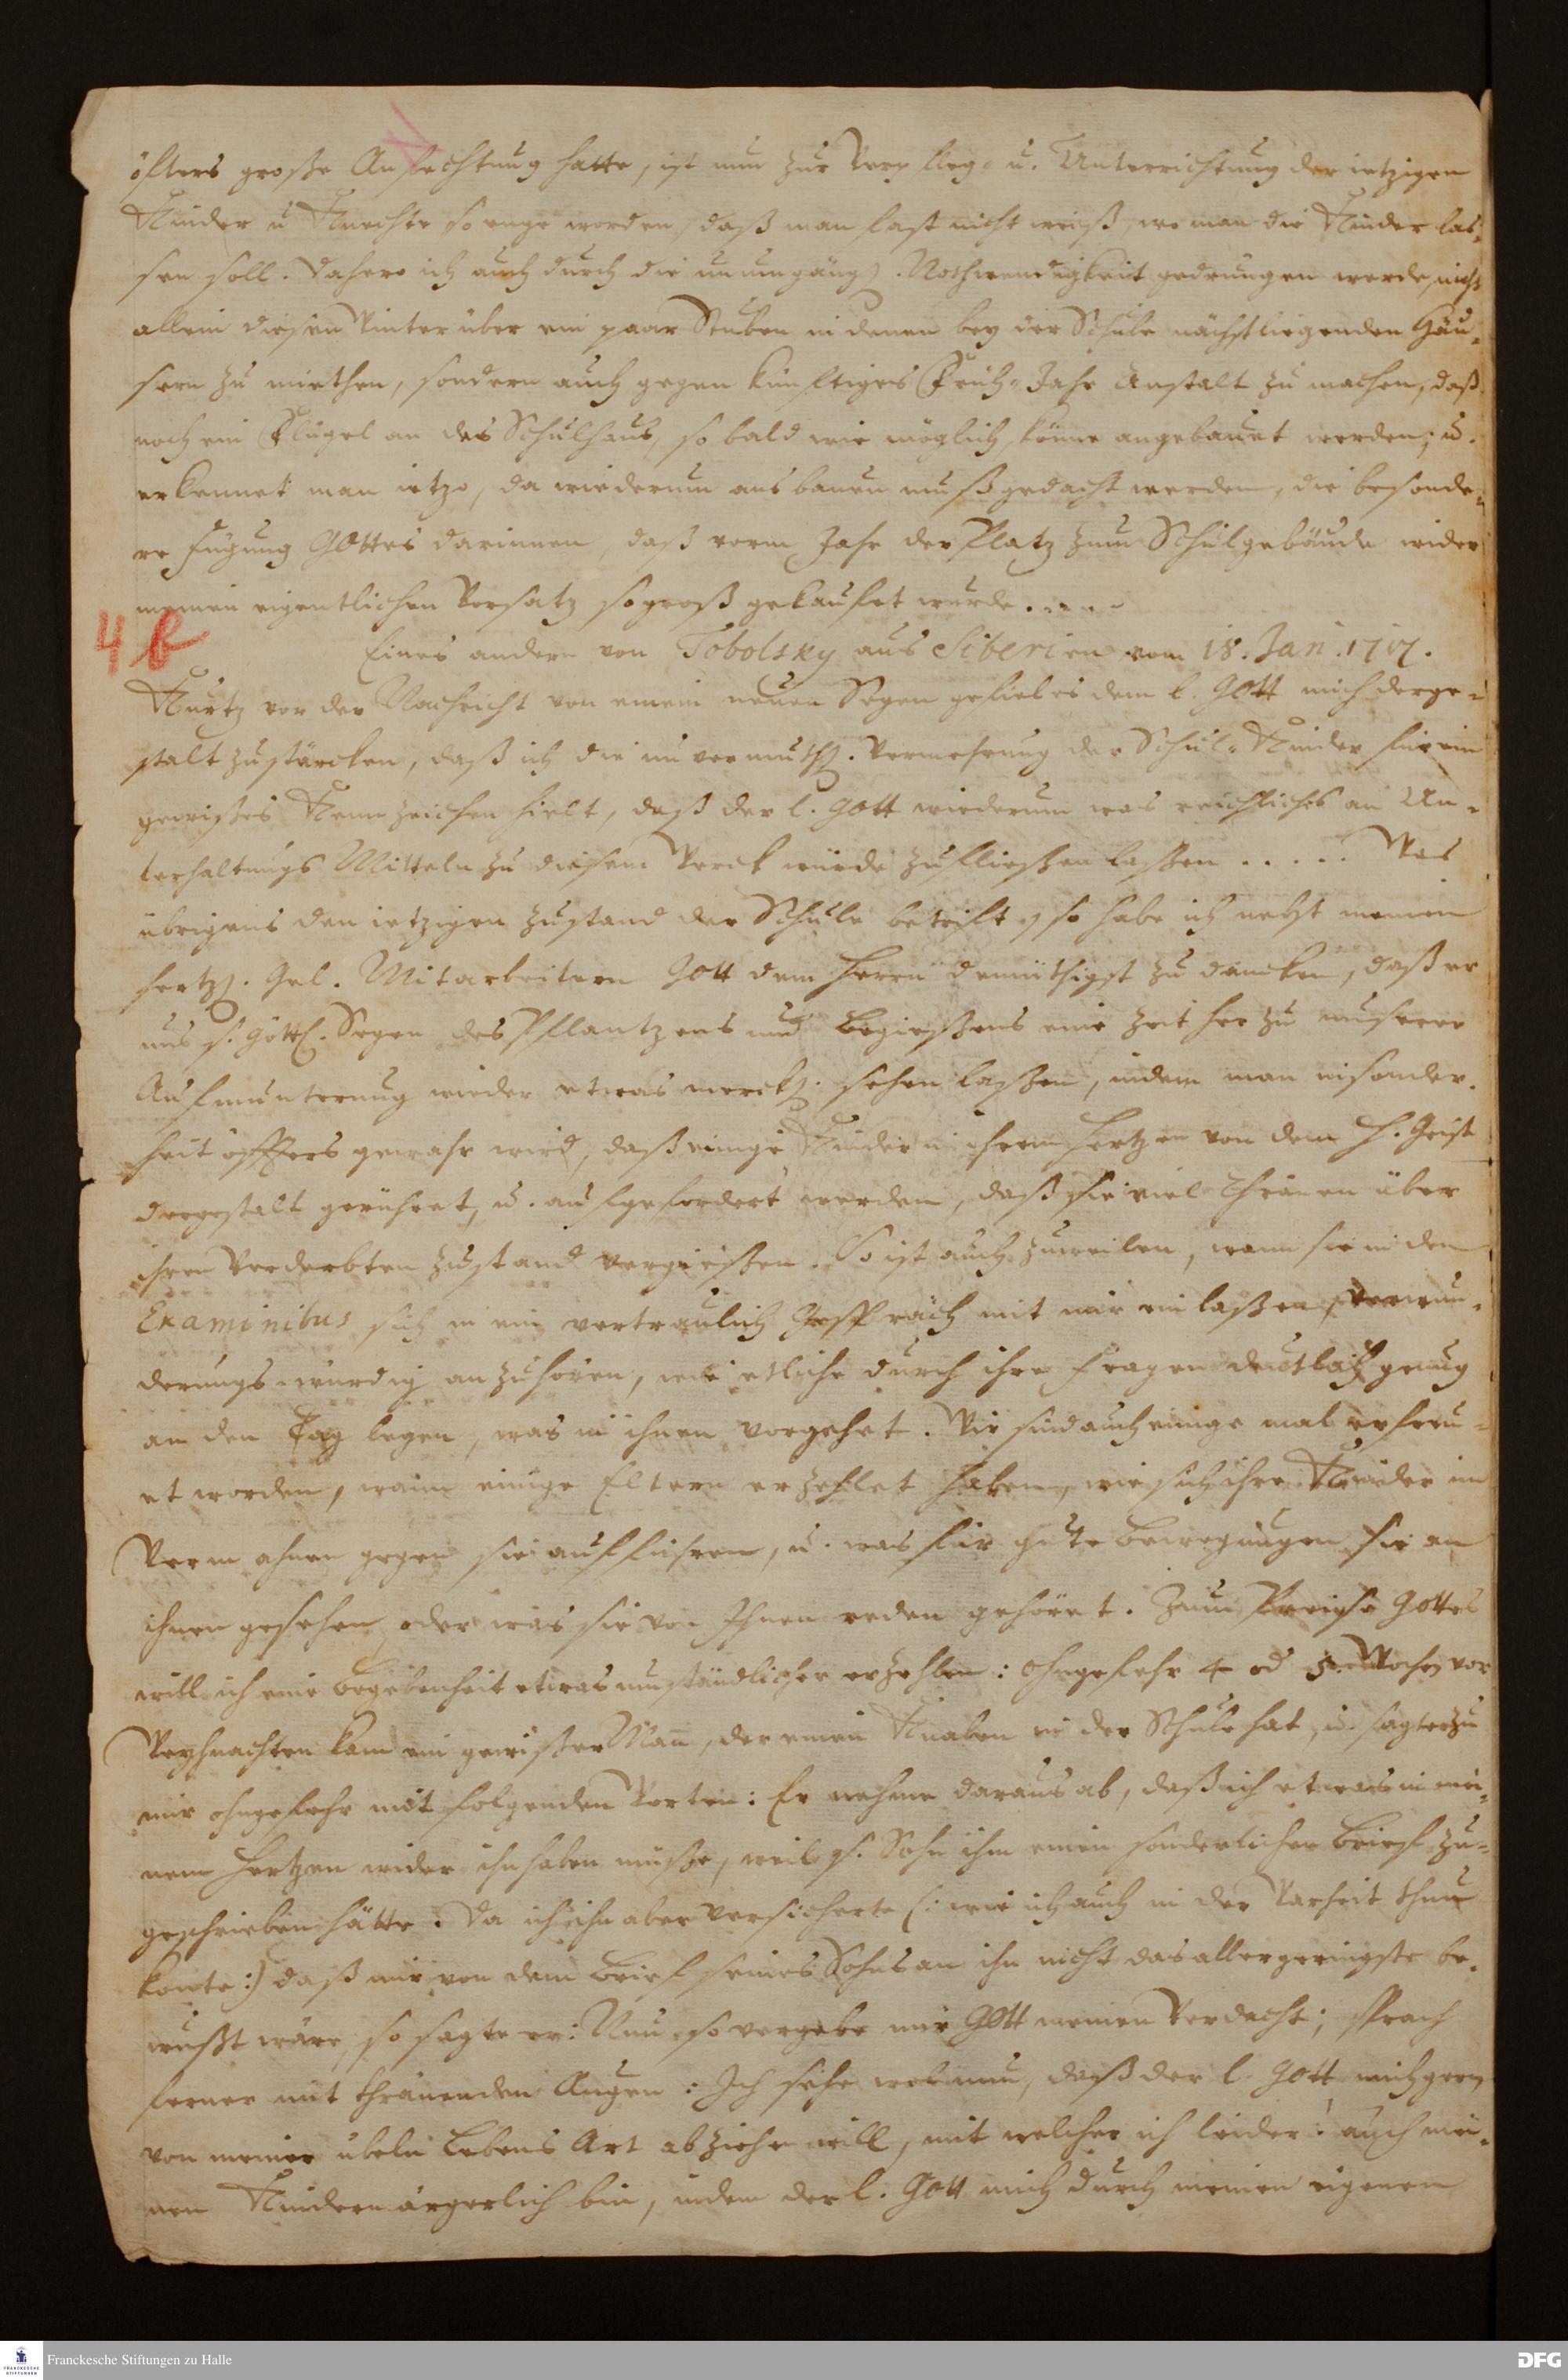 öfters große Anfechtung hatte, ist nun zur Verpfleg- u. Unterrichtung der ietzigen
Kinder u Knechte so enge worden, daß man fast nicht weiß, wo man die Kinder las-
sen soll. Dahero ich auch durch die unumgängl. Nothwendigkeit gedrungen werde, nicht
allein diesen Winter über ein paar Stuben in denen bey der Schule nächstliegenden Häu-
sern zu miethen, sondern auch gegen künfftiges Früh-Jahr Anstalt zu machen, daß
noch ein Flügel an das Schulhauß, so bald wie möglich, könne angebauet werden; u.
erkennet man ietzo, da wiederum ans bauen muß gedacht werden, die besonde-
re Fügung GOttes darinnen, daß vorm Jahr der Platz zum Schulgebäude wider
meinen eigentlichen Vorsatz so groß gekaufet wurde.....
4 b
Eines andern von Tobolsky aus Siberien vom 18. Jan. 1717.
Kurtz vor der Nachricht von einem neuen Segen gefiel es dem l. GOtt mich derge-
stalt zu stärcken, daß ich die unvermuthl. Vermehrung der Schul-Kinder für ein
gewißes Kennzeichen hielt, daß der l. Gott wiederum was reichliches an Un-
terhaltungs Mitteln zu diesem Werck würde zufließen laßen..... Was
übrigens den ietzigen Zustand der Schule betrifft, so habe ich nebst meinen
hertzl. Gel. Mitarbeitern Gott dem Herrn demüthigst zu dancken, daß er
uns s. göttl. Segen des Pflantzens und Begießens eine Zeit her zu unserer
Aufmunterung wieder etwas merckl. sehen laßen, indem man insonder-
heit öffters gewahr wird, daß einige Kinder in ihrem Hertzen von dem H. Geist
dergestalt gerühret u. aufgefordert werden, daß sie viel Thränen über
ihren Verderbten Zustand vergießen. So ist auch zuweilen, wann sie in den
Examinibus sich in ein vertraulich Gespräch mit mir einlaßen, verwun-
derungs-würdig anzuhören, wie etliche durch ihre Fragen deutlich genug
an den Tag legen, was in ihnen vorgehet. Wir sind auch einige mal erfreu-
et worden, wann einige Eltern erzehlet haben, wie sich ihre Kinder im
Vermahnen gegen sie aufführen, u. was für gute Bewegungen sie an
ihnen gesehen oder was sie von Ihnen reden gehöret. Zum Preise Gottes
will ich eine Begebenheit etwas umständlicher erzehlen: Ohngefehr 4 od 5. Wochen vor
Weyhnachten kam ein gewißer Mann, der einen Knaben in der Schule hat, u. sagte zu
mir ohngefehr mit folgenden Worten: Er nehme daraus ab, daß ich etwas in mei-
nem Hertzen wider ihn haben müße, weil s. Sohn ihm einen sonderlichen Brief zu-
geschrieben hätte. Da ich ihn aber versicherte (: wie ich auch in der Warheit thun
konte:) daß mir von dem Brief seines Sohns an ihn nicht das allergeringste be-
wußt wäre, so sagte er: Nun so vergebe mir GOtt meinen Verdacht; sprach
ferner mit thränenden Augen: Ich sehe wol nun, daß der l. Gott mich gern
von meiner übeln Lebens Art abziehn will, mit welcher ich leider! auch mei-
nen Kindern ärgerlich bin, indem der l. Gott mich durch meinen eigenen
Franckesche Stiftungen zu Halle
FRANCKESCHE STIFTUNGEN
DFG